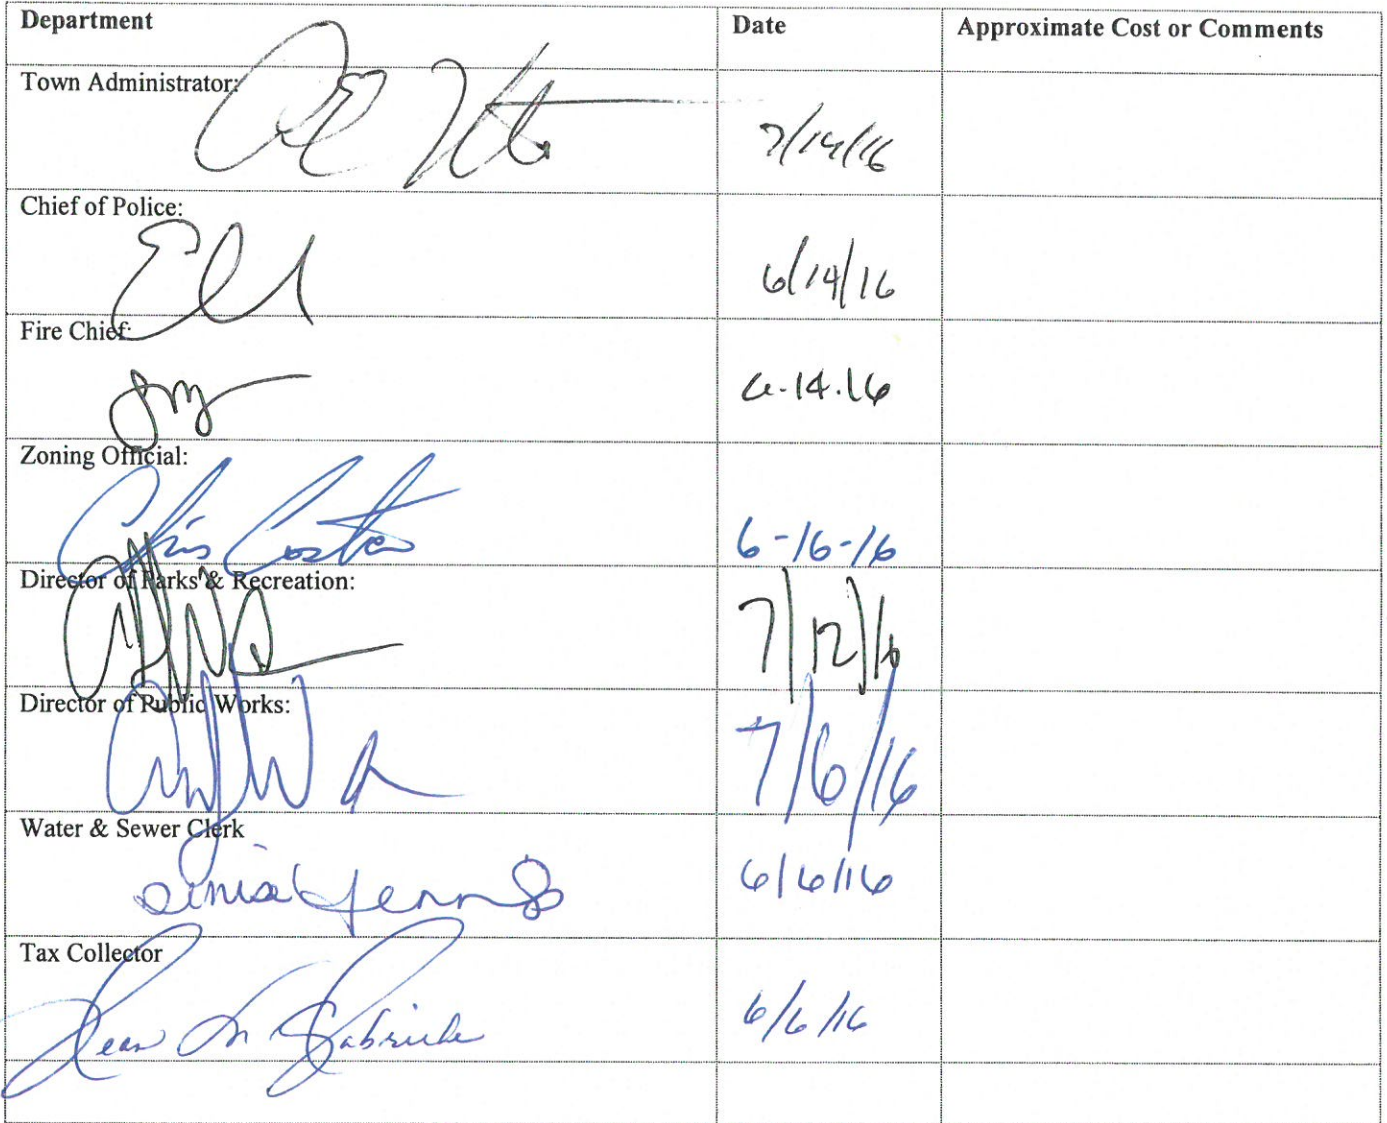 Department Date Approximate Cost or Comments
Town Administrator:
7/14/16
Chief of Police:
6/14/16
Fire Chief:
6.14.16
Zoning Official:
Chris Costa 6-16-16
Director of Parks & Recreation:
7/12/16
Director of Public Works:
7/6/16
Water & Sewer Clerk
6/6/16
Tax Collector
Jean M Gabriele 6/6/16